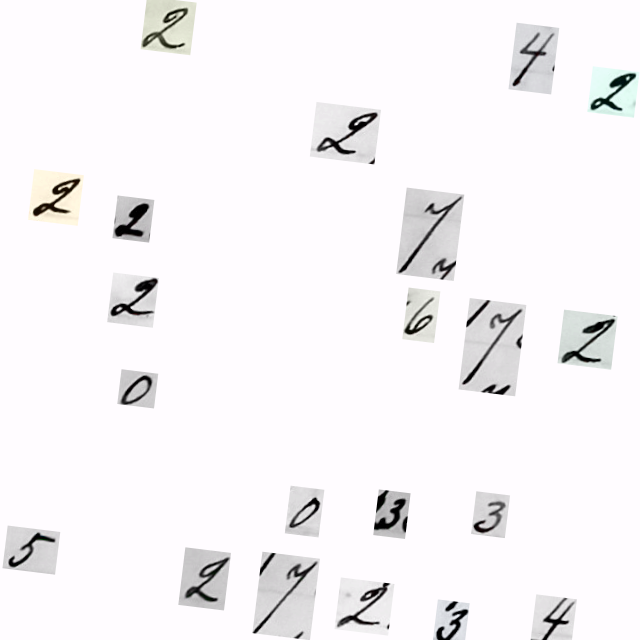 2
4
2
2
2
2
7
2
6
7
2
0
0
3
3
5
2
7
2
3
4